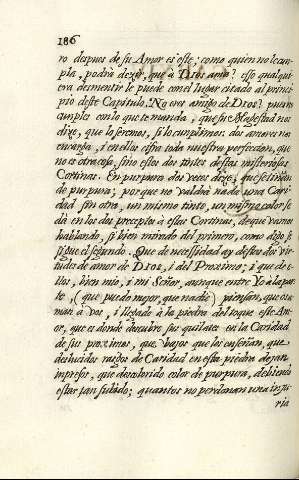 186
ro despues de su Amor es este; como quien no le cun-
pla, podrá dezir, que à Dios ama? esso qualqui-
era desmentir le puede con el lugar citado al princi-
pio deste Capitulo: No eres amigo de Dios? pues no
cunples con lo que te manda, que su Magestad nos
dize, que lo seremos, si lo cunplimos: dos amores nos
encarga, i en ellos cifra toda nuestra perfeccion, que
no es otra cosa, sino estos dos tintes destas misteriosas
Cortinas. En purpura dos veces dize, que se tiñan
de purpura; porque no valdrá nada una Cari-
dad sin otra, un mismo tinto, un mismo color se
dà en los dos preceptos à estas Cortinas, de que vamos
hablando, si bien mirado del primero, como digo, se
sigue el segundo. Que de necessidad ay destas dos Vir-
tudes de amor de Dios, i del Proximo; i que de e-
llos, bien mio, i mi Señor, aunque entre Yo a la par-
te, (que puedo mejor, que nadie) piensan, que os a-
man à vos, i llegado à la piedra del toque este Am-
or, que es donde descubre sus quilates en la Caridad
de sus proximos, que vajos que los enseñan, que
desluzidos rasgos de Caridad en esta piedra dejan
impresos, que descolorido color de purpura, debiendo
estar tan subido; quantos no perdonan una inju-
ria